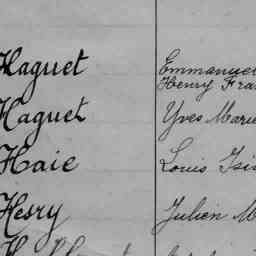 Haguet Emmanuel
Henry Fra
Haguet Yves Marie
Haie Louis Isi
Hesry Julien M